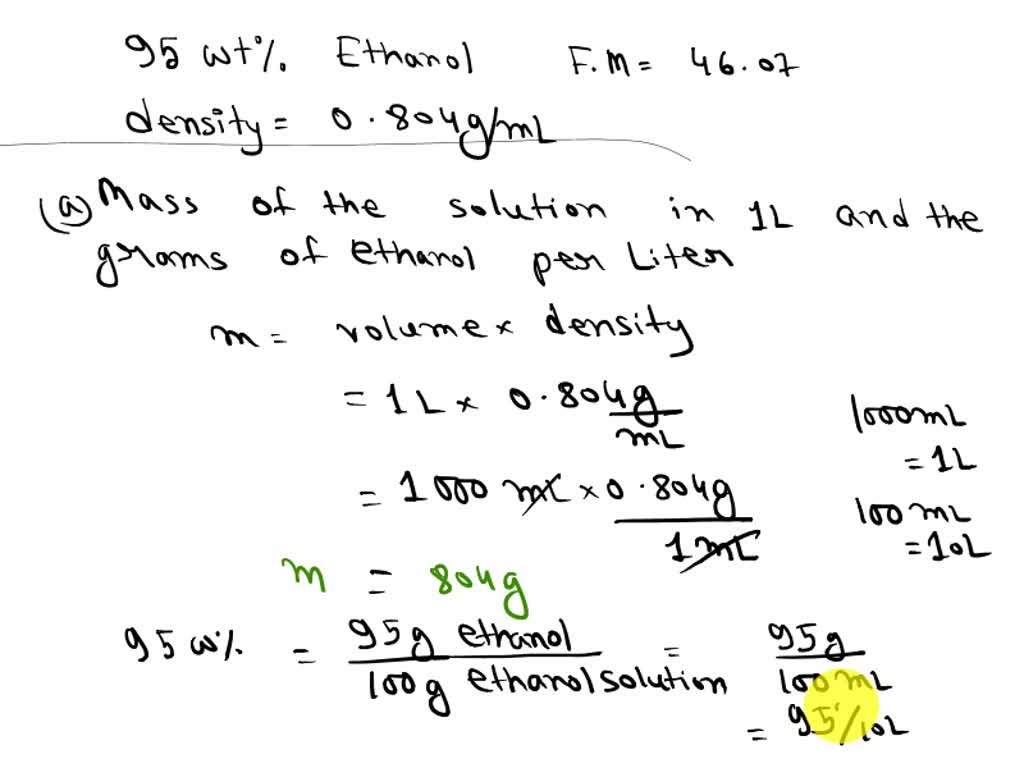 95 wt% Ethanol F.M = 46.07
density = 0.804g/mL
(a) Mass of the solution in 1L and the
grams of ethanol per Liter
m = volume × density
= 1L × 0.804g/mL
1000mL
= 1L
= 1000 mL × 0.804g/1mL
100mL
= 10L
m = 804g
95 w% = 95g ethanol/100g ethanol solution = 95g/100mL
= 95/10L